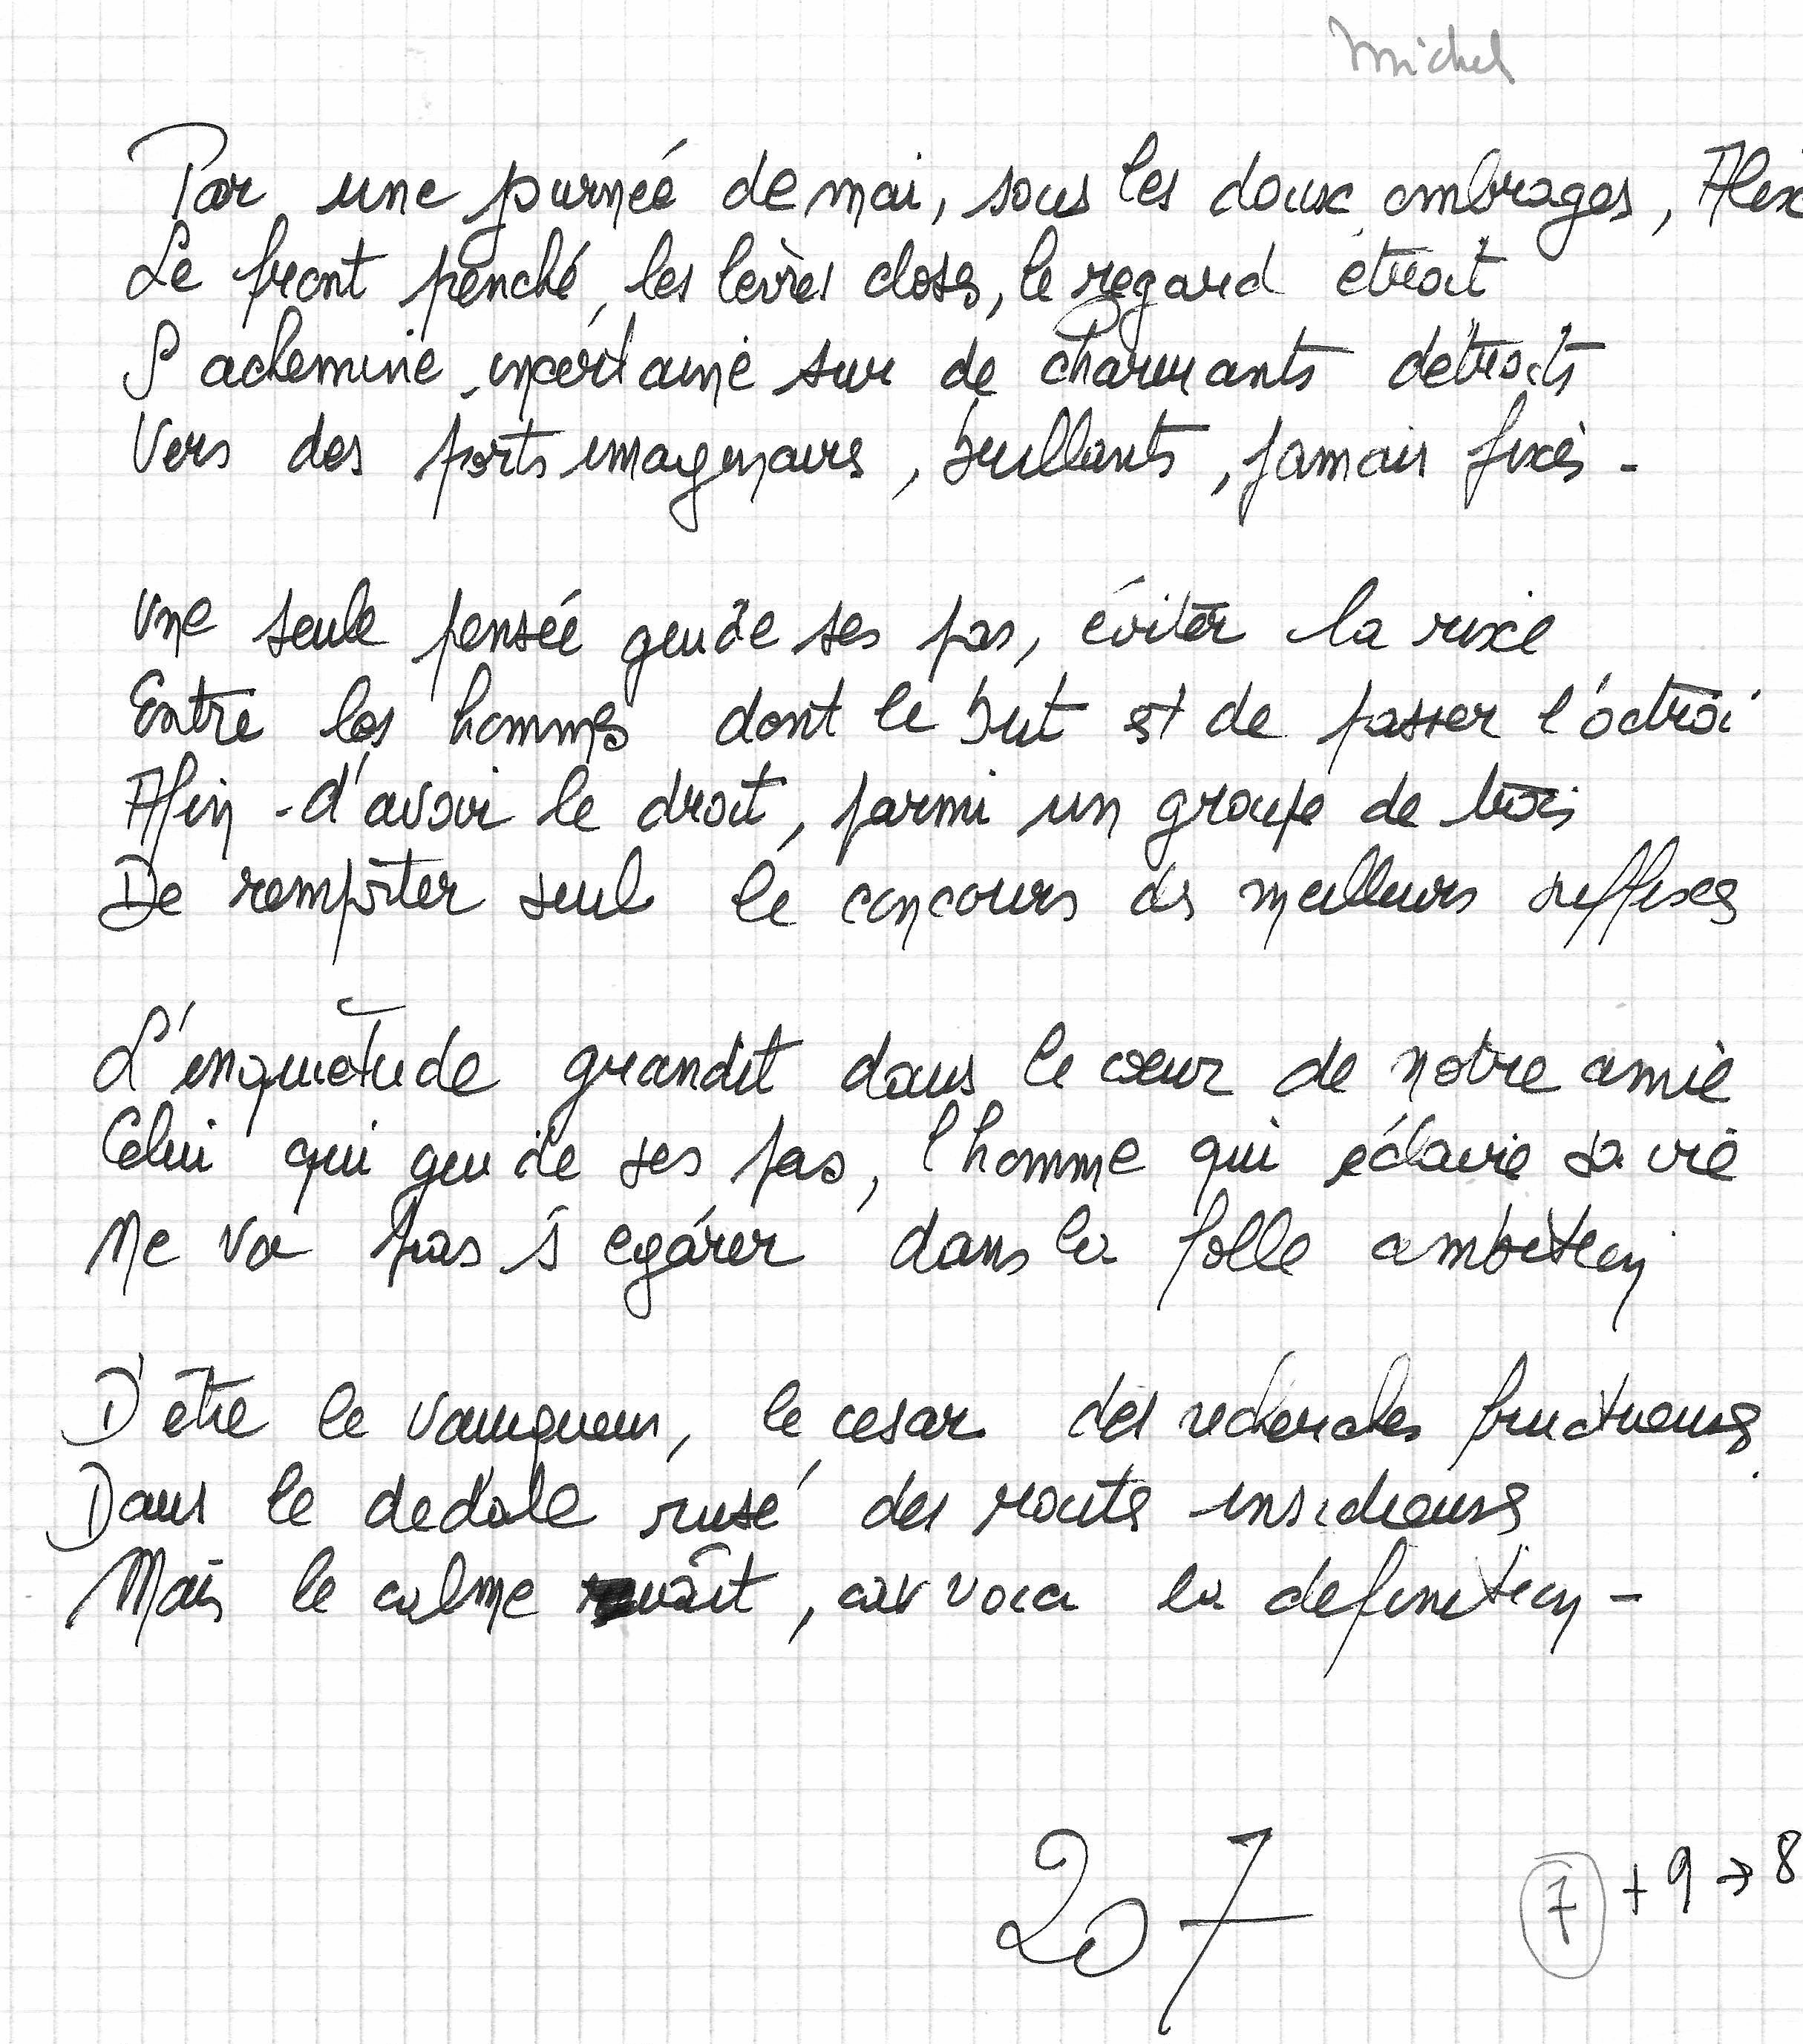 Michel
Par une journée de mai, sous les doux ombrages, Alix
Le front penché, les lèvres closes, le regard étroit
S'achemine, incertaine sur de charmants détroits
Vers des ports imaginaires, brillants, jamais fixés -
Une seule pensée guide ses pas, éviter la rixe
Entre les hommes dont le but est de passer l'octroi
Afin d'avoir le droit, parmi un groupe de trois
De remporter seul le concours des meilleurs suffixes
L'inquiétude grandit dans le cœur de notre amie
Celui qui guide ses pas, l'homme qui éclaire sa vie
Ne va pas s'égarer dans la folle ambition
D'être le vainqueur, le césar des recherches fructueuses
Dans le dédale rusé des routes insidieuses
Mais le calme renaît, car voici la définition -
207
7 + 9 → 8